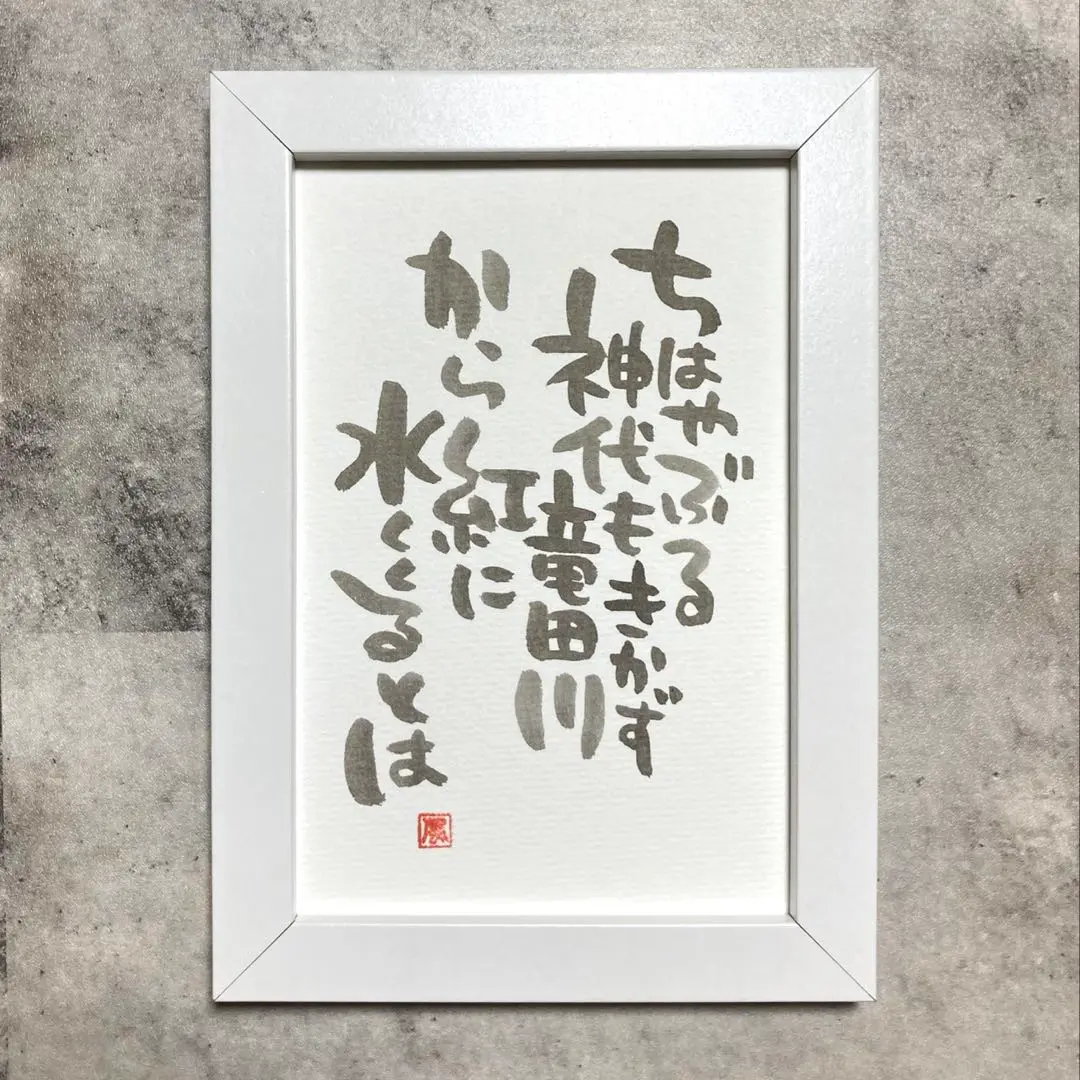 ちはやぶる
神代もきかず
竜田川
から紅に
水くくるとは